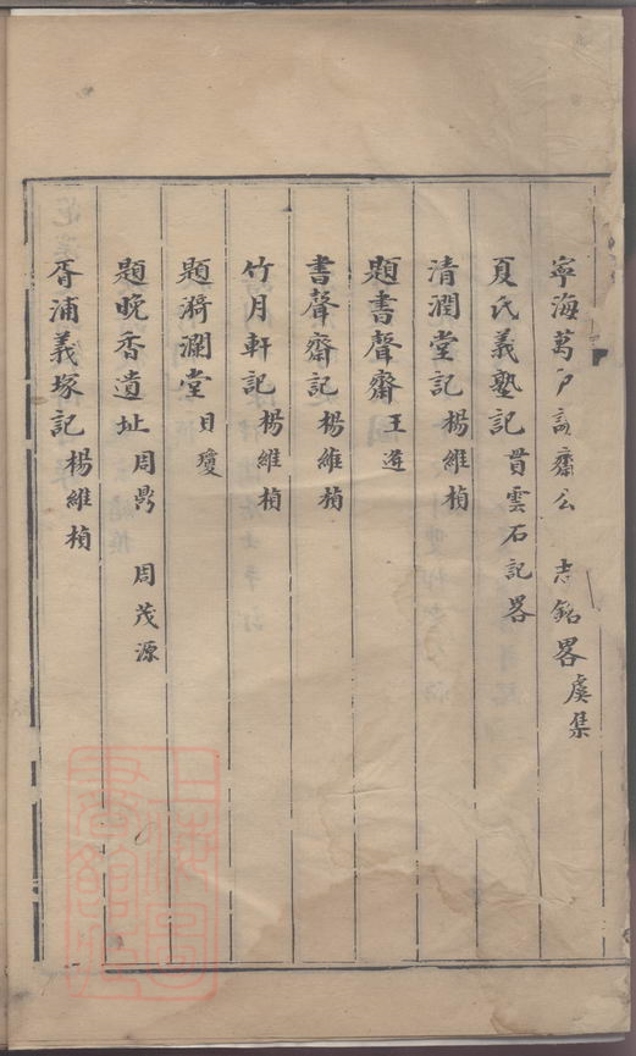 寧海萬戶 齋公 志銘畧 虞集
夏氏義塾記 貫雲石記畧
清潤堂記 楊維楨
題書聲齋 王逰
書聲齋記 楊維楨
竹月軒記 楊維楨
題漪瀾堂 貝瓊
題晚香遺址 周鼎 周茂源
胥浦義塚記 楊維楨
上海圖書館藏